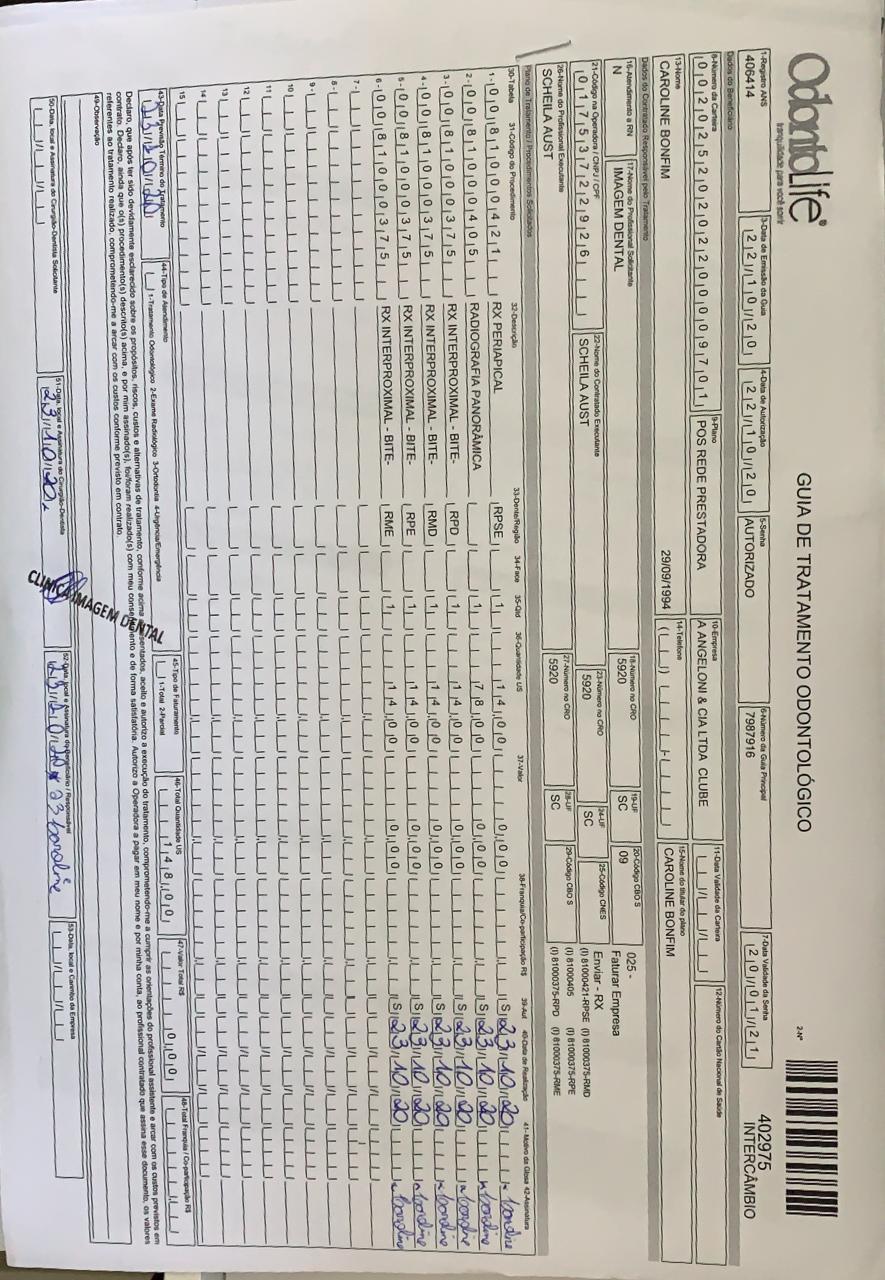 OdontoLife®
tranquilidade para você sorrir
GUIA DE TRATAMENTO ODONTOLÓGICO
2-Nº
402975
INTERCÂMBIO
1-Registro ANS
406414
3-Data de Emissão da Guia
22/10/20
4-Data de Autorização
22/10/20
5-Senha
AUTORIZADO
6-Número da Guia Principal
7987916
7-Data Validade da Senha
20/01/21
Dados do Beneficiário
8-Número da Carteira
002025202200009701
9-Plano
POS REDE PRESTADORA
10-Empresa
A ANGELONI & CIA LTDA CLUBE
11-Data Validade da Carteira
12-Número do Cartão Nacional de Saúde
13-Nome
CAROLINE BONFIM
29/09/1994
14-Telefone
15-Nome do titular do plano
CAROLINE BONFIM
Dados do Contratado Responsável pelo Tratamento
16-Atendimento a RN
N
17-Nome do Profissional Solicitante
IMAGEM DENTAL
18-Número no CRO
5920
19-UF
SC
20-Código CBO S
09
025 -
Faturar Empresa
21-Código na Operadora / CNPJ / CPF
01753722926
22-Nome do Contratado Executante
SCHEILA AUST
23-Número no CRO
5920
24-UF
SC
25-Código CNES
Enviar - RX
(I) 81000421-RPSE (I) 81000375-RMD
(I) 81000405 (I) 81000375-RPE
(I) 81000375-RPD (I) 81000375-RME
26-Nome do Profissional Executante
SCHEILA AUST
27-Número no CRO
5920
28-UF
SC
29-Código CBO S
Plano de Tratamento / Procedimentos Solicitados
30-Tabela 31-Código do Procedimento 32-Descrição 33-Dente/Região 34-Face 35-Qtd 36-Quantidade US 37-Valor 38-Franquia/Co-participação R$ 39-Aut 40-Data de Realização 41-Motivo da Glosa 42-Assinatura
1- 00 81000421 RX PERIAPICAL RPSE 1 14,00 0,00 S 23/10/20
2- 00 81000405 RADIOGRAFIA PANORÂMICA 1 78,00 0,00 S 23/10/20
3- 00 81000375 RX INTERPROXIMAL - BITE- RPD 1 14,00 0,00 S 23/10/20
4- 00 81000375 RX INTERPROXIMAL - BITE- RMD 1 14,00 0,00 S 23/10/20
5- 00 81000375 RX INTERPROXIMAL - BITE- RPE 1 14,00 0,00 S 23/10/20
6- 00 81000375 RX INTERPROXIMAL - BITE- RME 1 14,00 0,00 S 23/10/20
7-
8-
9-
10
11
12
13
14
15
43-Data Previsão Término do Tratamento
44-Tipo de Atendimento
1-Tratamento Odontológico 2-Exame Radiológico 3-Ortodontia 4-Urgência/Emergência
45-Tipo de Faturamento
1-Total 2-Parcial
46-Total Quantidade US
148,00
47-Valor Total R$
0,00
48-Total Franquia / Co-participação R$
Declaro, que após ter sido devidamente esclarecido sobre os propósitos, riscos, custos e alternativas de tratamento, conforme acima apresentados, aceito e autorizo a execução do tratamento, comprometendo-me a cumprir as orientações do profissional assistente e arcar com os custos previstos em
contrato. Declaro, ainda que o(s) procedimento(s) descrito(s) acima, e por mim assinado(s), foi/foram realizado(s) com meu consentimento e de forma satisfatória. Autorizo a Operadora a pagar em meu nome e por minha conta, ao profissional contratado que assina esse documento, os valores
referentes ao tratamento realizado, comprometendo-me a arcar com os custos conforme previsto em contrato.
49-Observação
50-Data, local e Assinatura do Cirurgião-Dentista Solicitante
51-Data, local e Assinatura do Cirurgião-Dentista
23/10/20
CLINICA IMAGEM DENTAL
52-Data, local e Assinatura do Beneficiário / Responsável
53-Data, local e Carimbo da Empresa